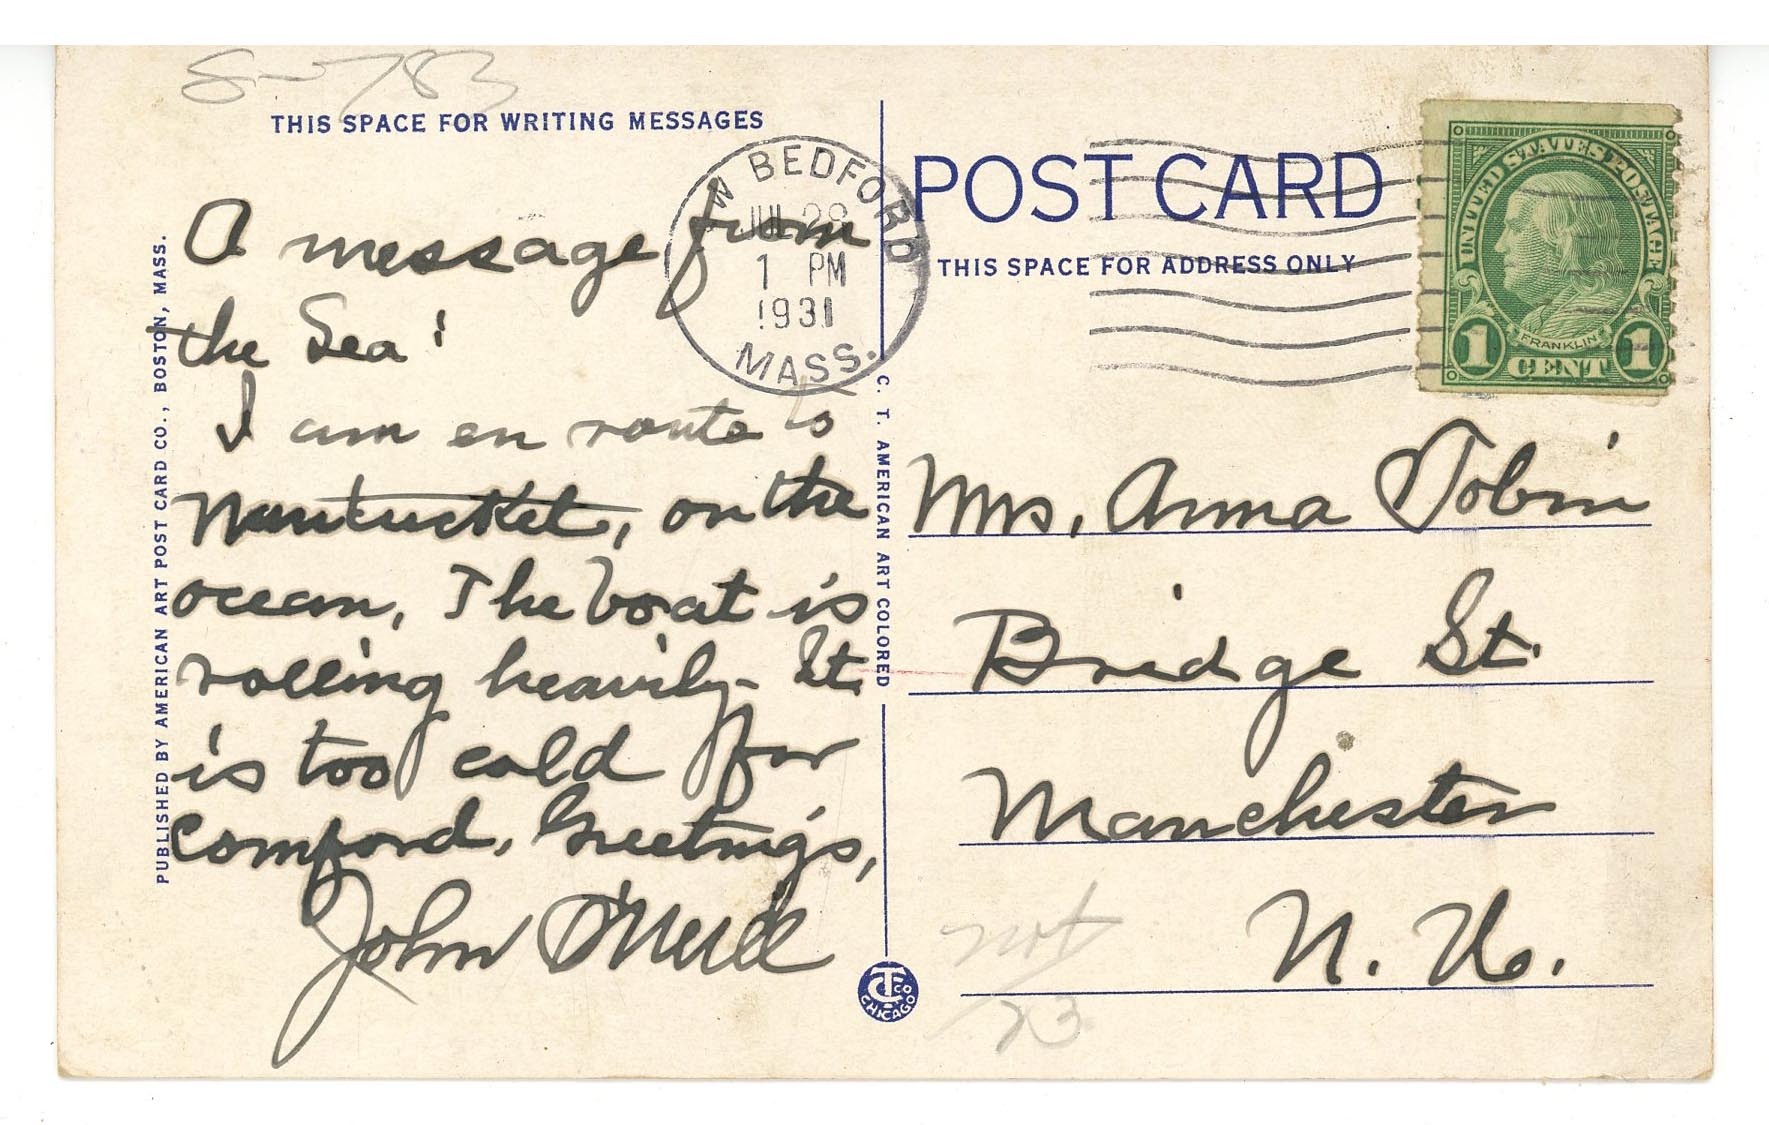 S-783
THIS SPACE FOR WRITING MESSAGES
A message from
the Sea!
I am en route to
Nantucket, on the
ocean, The boat is
rolling heavily- It
is too cold for
comford. Greetings,
John O'Neill
PUBLISHED BY AMERICAN ART POST CARD CO., BOSTON, MASS.
W BEDFORD
JUL 28
1 PM
1931
MASS.
C. T. AMERICAN ART COLORED
CT CO
CHICAGO
POST CARD
THIS SPACE FOR ADDRESS ONLY
UNITED STATES POSTAGE
FRANKLIN
1 CENT 1
Mrs. Anna Tobin
Bridge St.
Manchester
N. H.
23